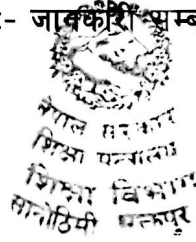 :- जानकारी सम्ब
नेपाल सरकार
शिक्षा मन्त्रालय
शिक्षा विभाग
सानोठिमी भक्तपुर